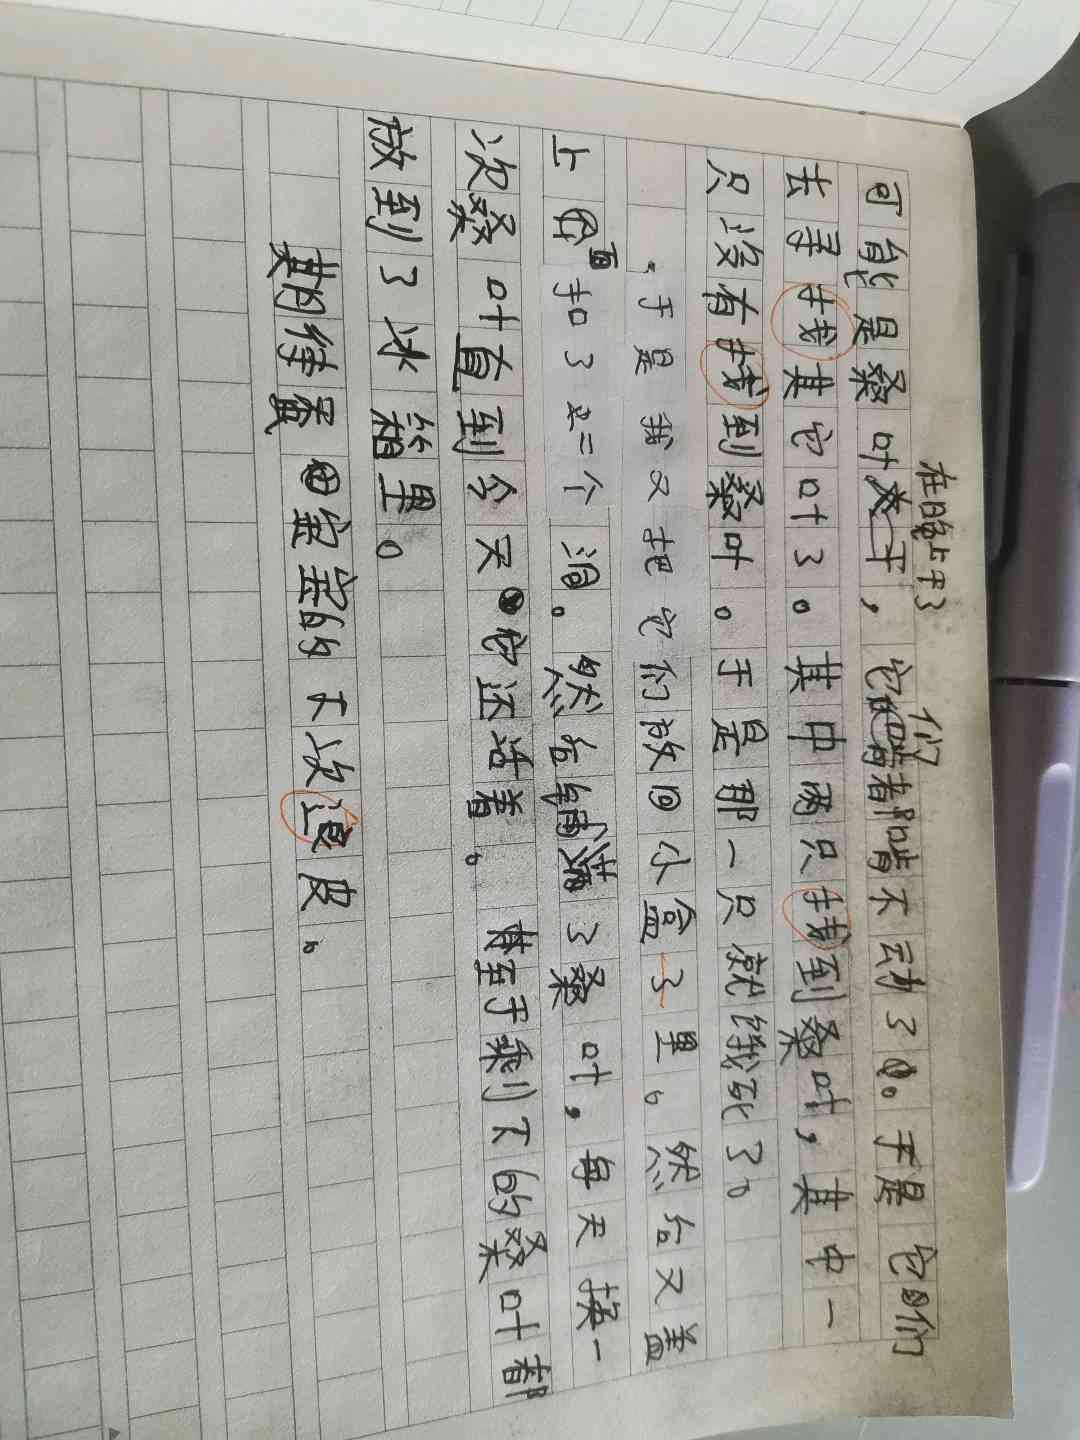 在晚上干了
们
可能是桑叶太干，它们啃都啃不动了。于是它们
去寻找其它叶了。其中两只找到桑叶，其中一
只没有找到桑叶。于是那一只就饿死了。
于是我又把它们放回小盒子里。然后又盖
上盖扣了二个洞。然后铺满了桑叶，每天换一
次桑叶直到今天它还活着。甚至于剩下的桑叶都
放到了冰箱里。
期待蚕宝宝的下次退皮。